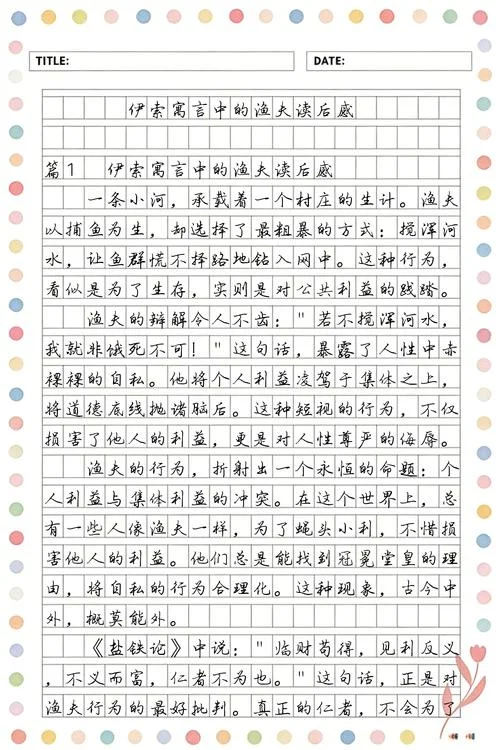 TITLE:
DATE:
伊索寓言中的渔夫读后感
篇1 伊索寓言中的渔夫读后感
一条小河，承载着一个村庄的生计。渔夫
以捕鱼为生，却选择了最粗暴的方式：搅浑河
水，让鱼群慌不择路地钻入网中。这种行为，
看似是为了生存，实则是对公共利益的践踏。
渔夫的辩解令人不齿："若不搅浑河水，
我就非饿死不可！"这句话，暴露了人性中赤
裸裸的自私。他将个人利益凌驾于集体之上，
将道德底线抛诸脑后。这种短视的行为，不仅
损害了他人的利益，更是对人性尊严的侮辱。
渔夫的行为，折射出一个永恒的命题：个
人利益与集体利益的冲突。在这个世界上，总
有一些人像渔夫一样，为了蝇头小利，不惜损
害他人的利益。他们总是能找到冠冕堂皇的理
由，将自私的行为合理化。这种现象，古今中
外，概莫能外。
《盐铁论》中说："临财苟得，见利反义
，不义而富，仁者不为也。"这句话，正是对
渔夫行为的最好批判。真正的仁者，不会为了